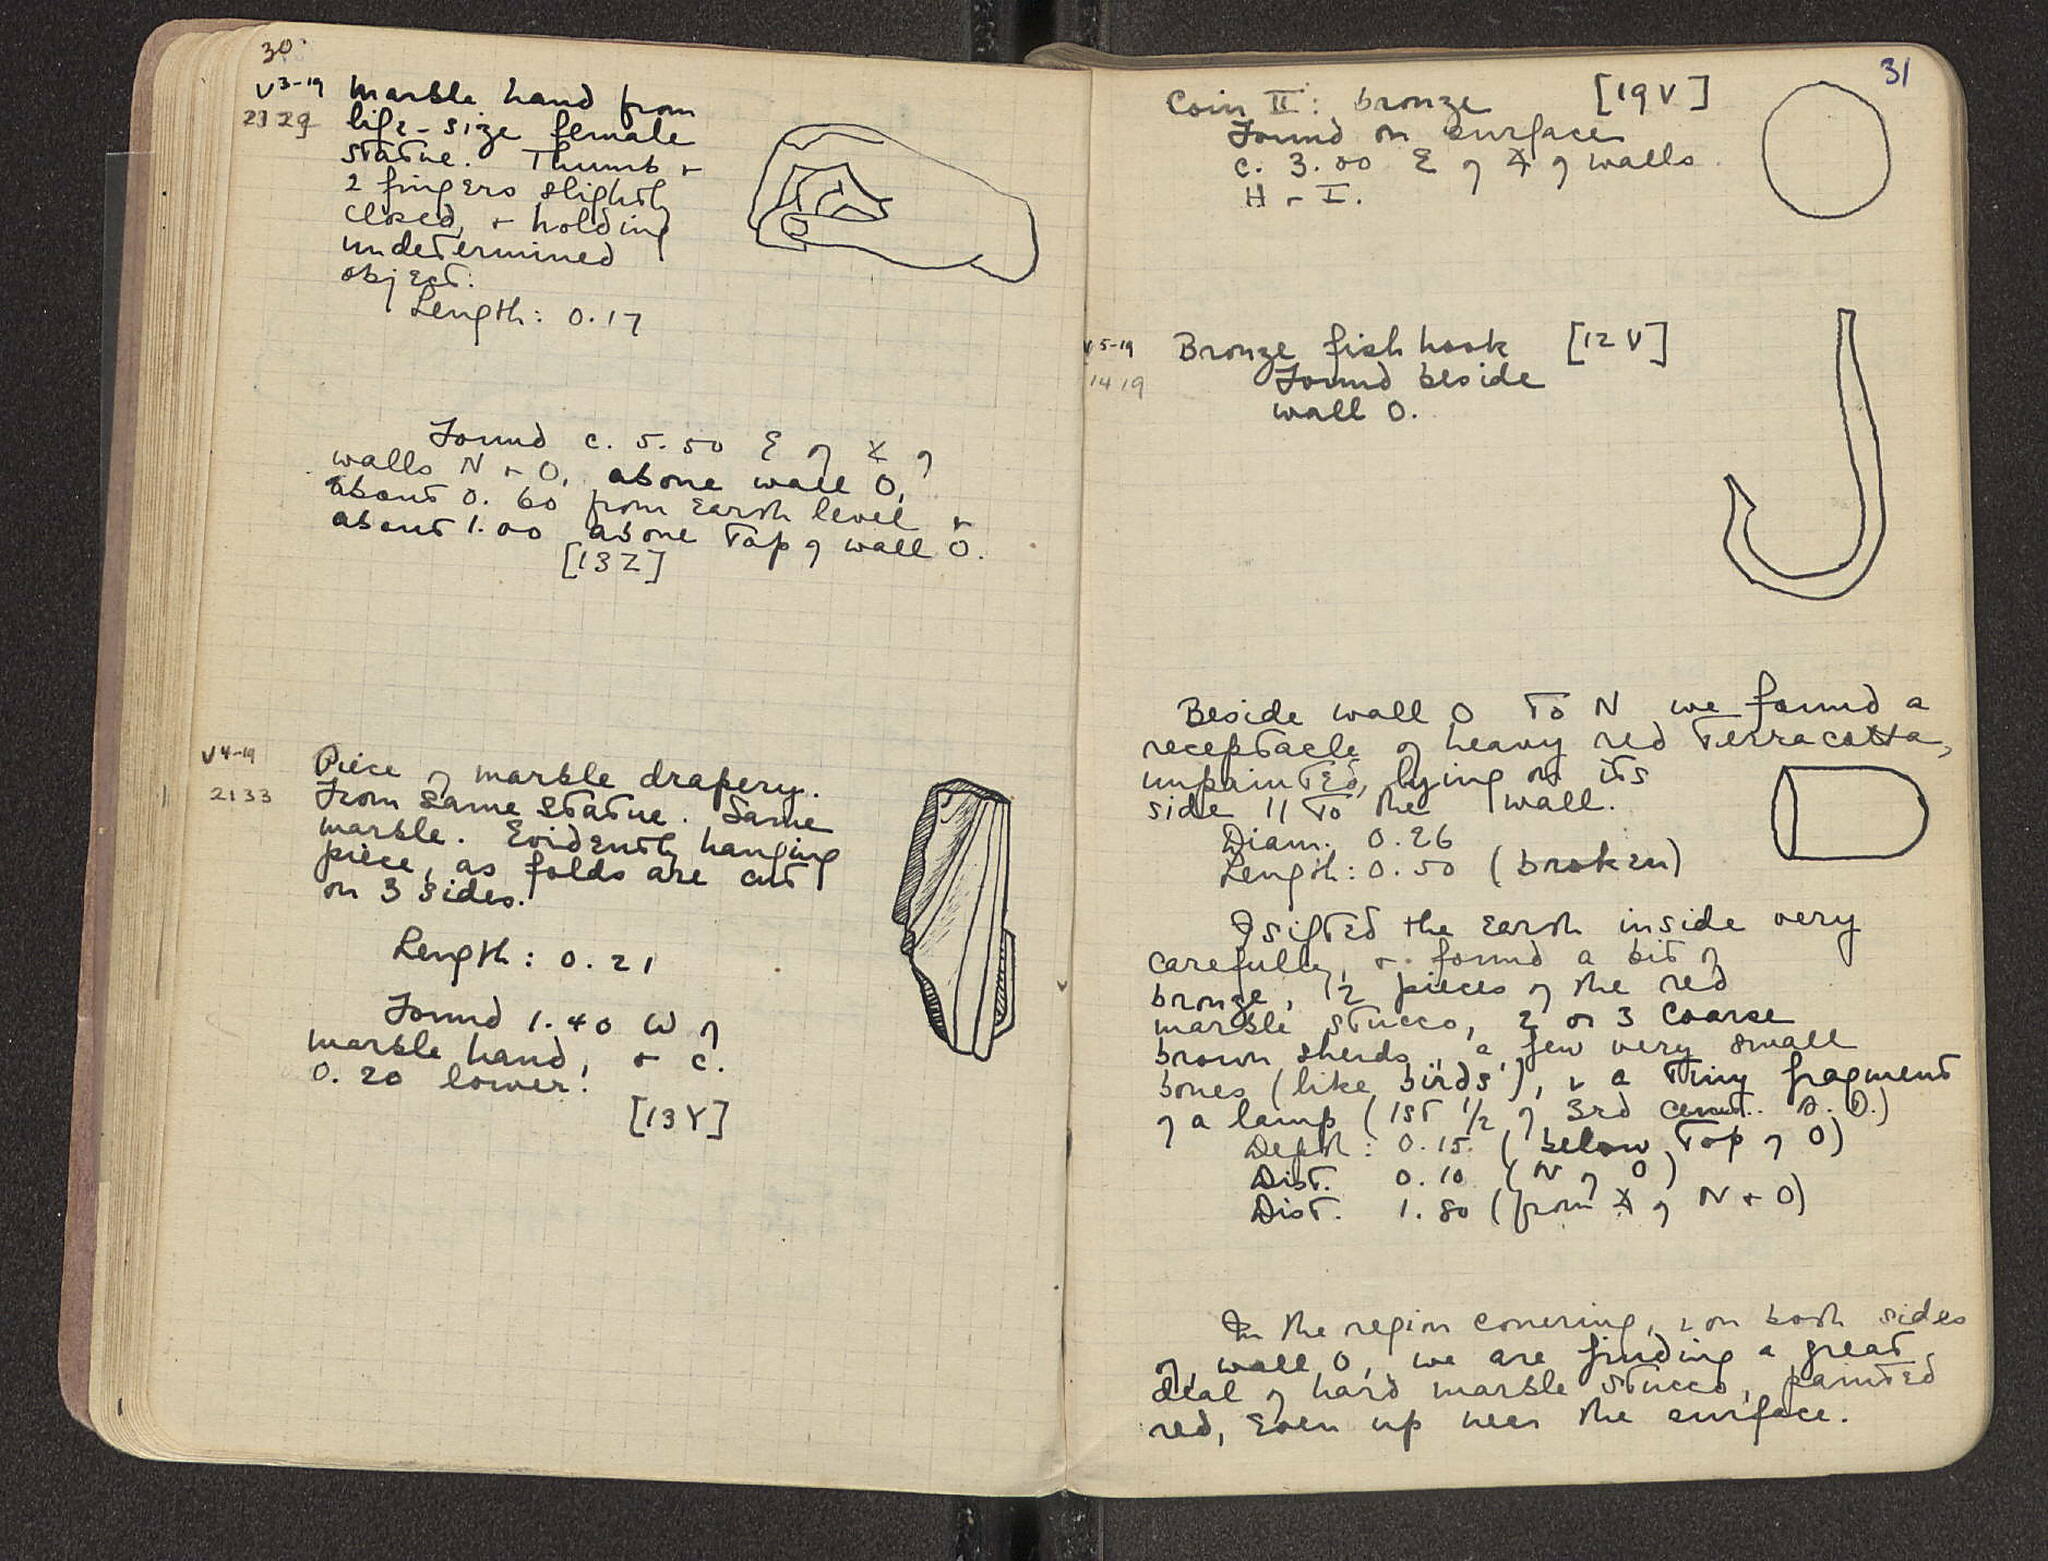 30
V3-19 Marble hand from
2129 life-size female
statue. Thumb +
2 fingers slightly
closed, + holding
undetermined
object.
Length: 0.17
Found c. 5.50 E of X of
walls N + O, above wall O,
about 0.60 from earth level +
about 1.00 above top of wall O.
[13Z]
V4-19 Piece of marble drapery.
2133 From same statue. Same
marble. Evidently hanging
piece, as folds are cut
on 3 sides.
Length: 0.21
Found 1.40 W of
marble hand, + c.
0.20 lower.
[13Y]
31
Coin II: bronze [19V]
Found on surface
c. 3.00 E of X of walls
H + I.
V5-19 Bronze fish hook [12V]
1419 Found beside
wall O.
Beside wall O to N we found a
receptacle of heavy red terracotta,
unpainted, lying on its
side // to the wall.
Diam. 0.26
Length: 0.50 (broken)
I sifted the earth inside very
carefully, + found a bit of
bronze, 2 pieces of the red
marble stucco, 2 or 3 coarse
brown sherds, a few very small
bones (like birds'), + a tiny fragment
of a lamp (1st 1/2 of 3rd cent. A.D.)
Depth: 0.15 (below top of O)
Dist. 0.10 (N of O)
Dist. 1.80 (from X of N + O)
In the region covering, + on both sides
of, wall O, we are finding a great
deal of hard marble stucco, painted
red, even up near the surface.